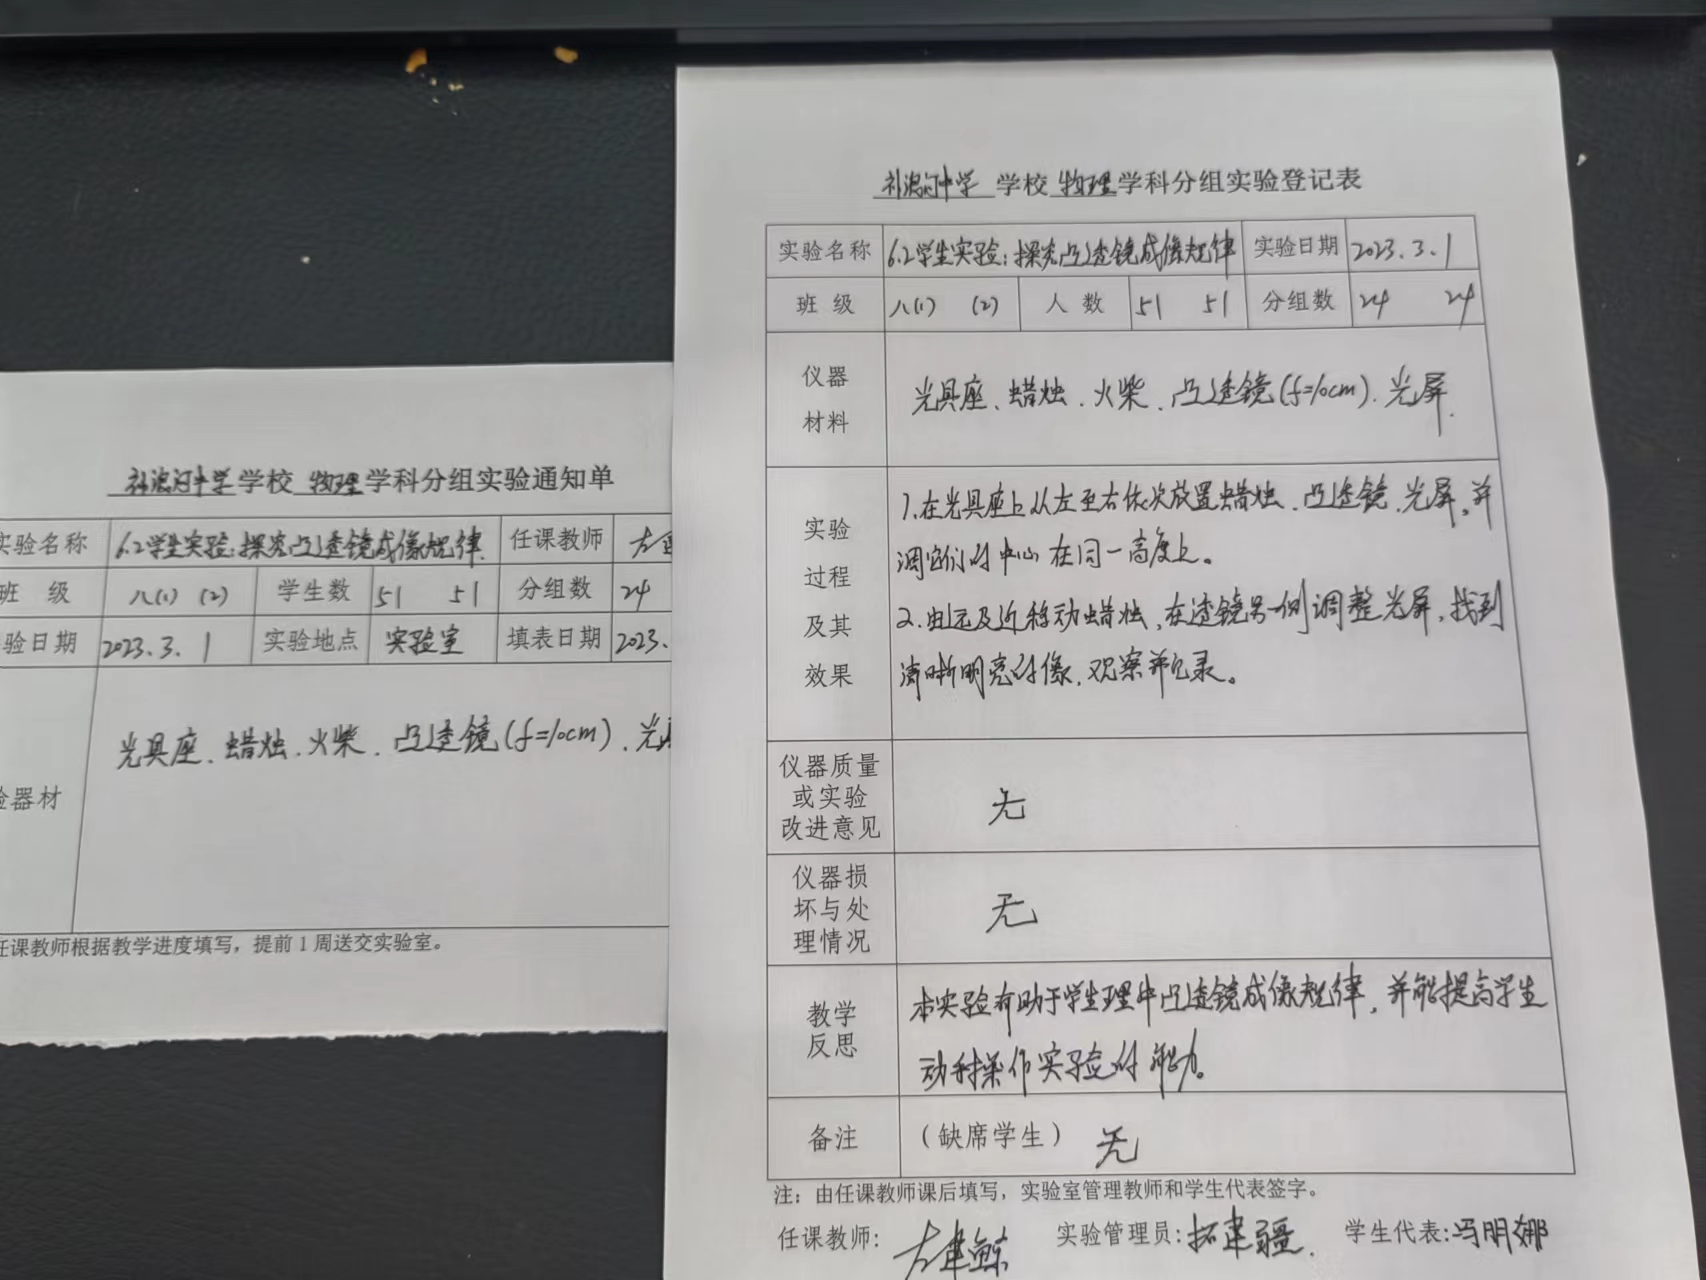 补浪河中学 学校 物理 学科分组实验通知单
实验名称 6.2学生实验:探究凸透镜成像规律. 任课教师
班 级 八(1) (2) 学生数 51 51 分组数 24
验日期 2023.3.1 实验地点 实验室 填表日期 2023.
光具座、蜡烛、火柴、凸透镜(f=10cm)、光
验器材
任课教师根据教学进度填写，提前1周送交实验室。
补浪河中学 学校 物理 学科分组实验登记表
实验名称 6.2学生实验:探究凸透镜成像规律 实验日期 2023.3.1
班 级 八(1) (2) 人 数 51 51 分组数 24 24
仪器
材料
光具座、蜡烛、火柴、凸透镜(f=10cm)、光屏.
实验
过程
及其
效果
1.在光具座上从左至右依次放置蜡烛、凸透镜、光屏,并
调它们的中心在同一高度上。
2.由远及近移动蜡烛,在透镜另一侧调整光屏,找到
清晰明亮的像,观察并记录。
仪器质量
或实验
改进意见
无
仪器损
坏与处
理情况
无
教学
反思
本实验有助于学生理中凸透镜成像规律,并能提高学生
动手操作实验的能力。
备注 （缺席学生） 无
注：由任课教师课后填写，实验室管理教师和学生代表签字。
任课教师: 实验管理员:拓建疆. 学生代表:冯明娜